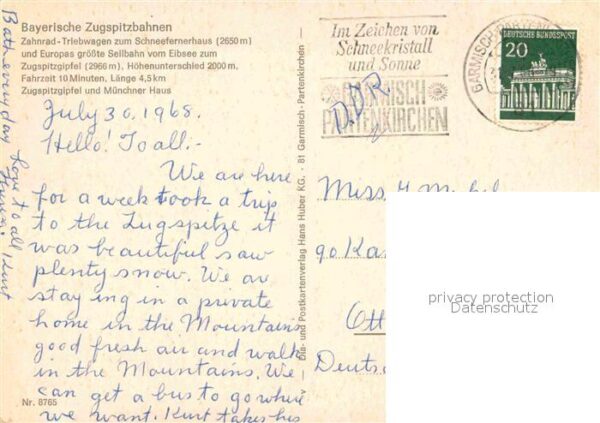 Bayerische Zugspitzbahnen
Zahnrad-Triebwagen zum Schneefernerhaus (2650 m)
und Europas größte Seilbahn vom Eibsee zum
Zugspitzgipfel (2966 m), Höhenunterschied 2000 m,
Fahrzeit 10 Minuten, Länge 4,5 km
Zugspitzgipfel und Münchner Haus
July 30. 1968.
Hello! To all.-
We are here
for a week took a trip
to the Zugspitze it
was beautiful saw
plenty snow. We ar
staying in a private
home in the Mountains
good fresh air and walk
in the Mountains. We
can get a bus to go where
we want. Kurt takes his
Nr. 8765
Bath every day love to all
Kurt
Dia- und Postkartenverlag Hans Huber KG, · 81 Garmisch-Partenkirchen
Im Zeichen von
Schneekristall
und Sonne
GARMISCH
PARTENKIRCHEN
DDR
GARMISCH-PARTEN
DEUTSCHE BUNDESPOST
20
Miss H.
90
Ott
Deuts
privacy protection
Datenschutz